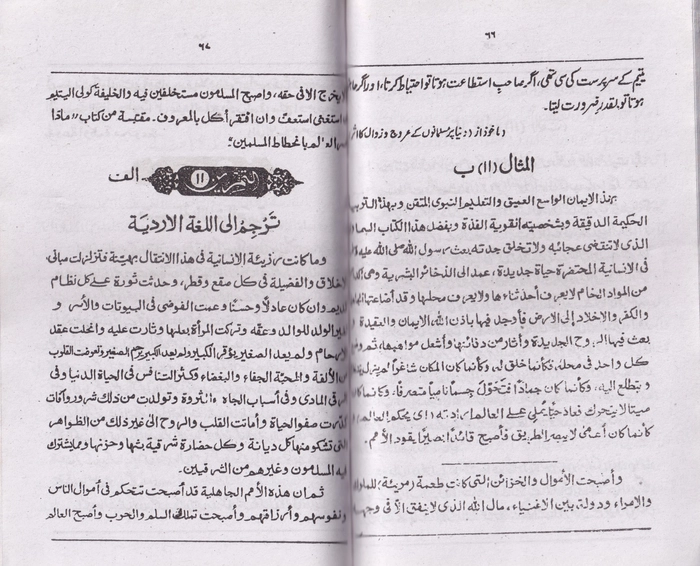 ٦٦
یتیم کے سرپرست کی سی تھی، اگر صاحبِ استطاعت ہوتا تو احتیاط کرتا، اور اگر
ہوتا تو بقدرِ ضرورت لیتا۔
(ماخوذ از : دنیا پر مسلمانوں کے عروج و زوال کا اثر
المثال (١١) ب
بهذا الايمان الواسع العميق والتعليم النبوي المتقن وبهذه
الحكيمة الدقيقة وبشخصيته القوية الفذة وبفضل هذا الكتاب
الذى لا تنقضى عجائبه ولا تخلق جدته، بعث رسول الله صلى الله عليه
فى الانسانية المحتضرة حياة جديدة، عمد الى الذخائر البشرية وهى
من المواد الخام لا يعرف أحد غناءها ولا يعرف محلها وقد أضاعتها
والكفر والإخلاد إلى الارض فأوجد فيها باذن الله، الايمان والعقيدة و
بعث فيها الروح الجديدة وأثار من دفائنها وأشعل مواهبها، ثم
كل واحد فى محله، فكأنما خلق له، وكأنما كان المكان شاغرًا لم يزل
و يتطلع اليه، وكأنما كان جمادًا فتحول جسمًا ناميًا متصرفًا، وكأنما كان
ميتا لا يتحرك فعاد حيًا يملى على العالم ارادته (اى يحكم العالم)
كأنما كان أعمى لا يبصر الطريق فأصبح قائدًا بصيرًا يقود الأمم.
وأصبحت الأموال والخزائن التى كانت طعمة (رهينة) للملوك
والامراء ودولة بين الاغنياء، مال الله الذى لا ينفق إلا فى وجهه
٦٧
لا يخرج الا فى حقه، واصبح المسلمون مستخلفين فيه والخليفة كولى اليتيم
استغنى استعف وان افتقر أكل بالمعروف. مقتبسة من كتاب "ماذا
خسر العالم بانحطاط المسلمين"
التمرين (١١) الف
تَرْجِمْ إلى اللغة الاردية
وما كانت رزيئة الانسانية فى هذا الانتقال بهينة فتزلزلت مبانى
الاخلاق والفضيلة فى كل صقع وقطر، وحدثت ثورة على كل نظام
قديم وان كان عادلًا وحسنًا وعمت الفوضى فى البيوتات والأسر و
الولد للوالد وعقه وتركت المرأة بعلها وثارت عليه وانحلت عقد
الارحام ولم يعد الصغير يوقر الكبير ولم يعد الكبير يرحم الصغير وتعرت القلوب
من الألفة والمحبة الجفاء والبغضاء وكثر التنافس فى الحياة الدنيا وفى
المادى وفى أسباب الجاه والثروة وتولدت من ذلك شرور وآفات
كدرت صفو الحياة وأماتت القلب والروح الى غير ذلك من الظواهر
التى تشكو منها كل ديانة وكل حضارة شرقية بثها وحزنها ومما يشترك
فيه المسلمون وغيرهم من الشرقيين.
ثم ان هذه الأمم الجاهلية قد أصبحت تتحكم فى أموال الناس
ونفوسهم وأرزاقهم وأصبحت تملك السلم والحرب وأصبح العالم